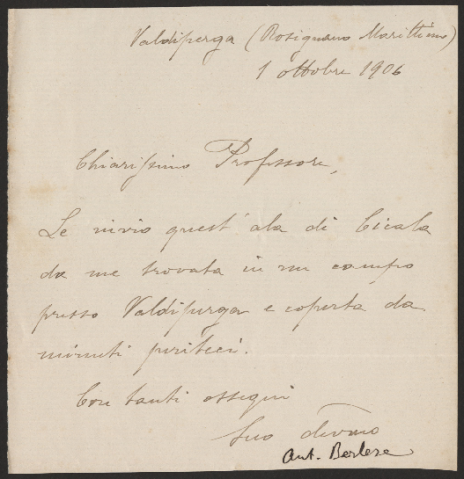 Valdiperga (Rosignano Marittimo)
1 ottobre 1906
Chiarissimo Professore,
Le invio quest'ala di Cicala
da me trovata in un campo
presso Valdiperga e coperta da
minuti periteci.
Con tanti ossequi
Suo devmo
Ant. Berlese